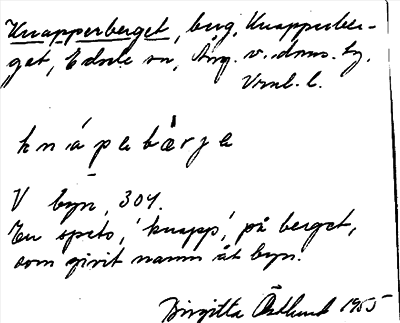 Knapperberget, berg, Knapperber-
get, Eds sn, Ång. v. dms. tg.
Vrml. l.
k n á p e b æ r j e
V byn, 304.
En spets, 'knapp', på berget,
som givit namn åt byn.
Birgitta Östlund 1955